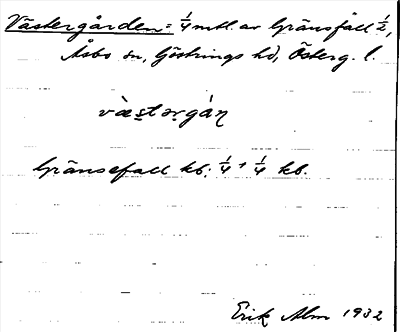 Västergården = 1/4 mtl. av Gränsfall 1/2,
Åsbo sn, Göstrings hd, Österg. l.
væ̀stərgán
Gränsefall kb: 1/4 + 1/4 kb.
Erik Alm 1932